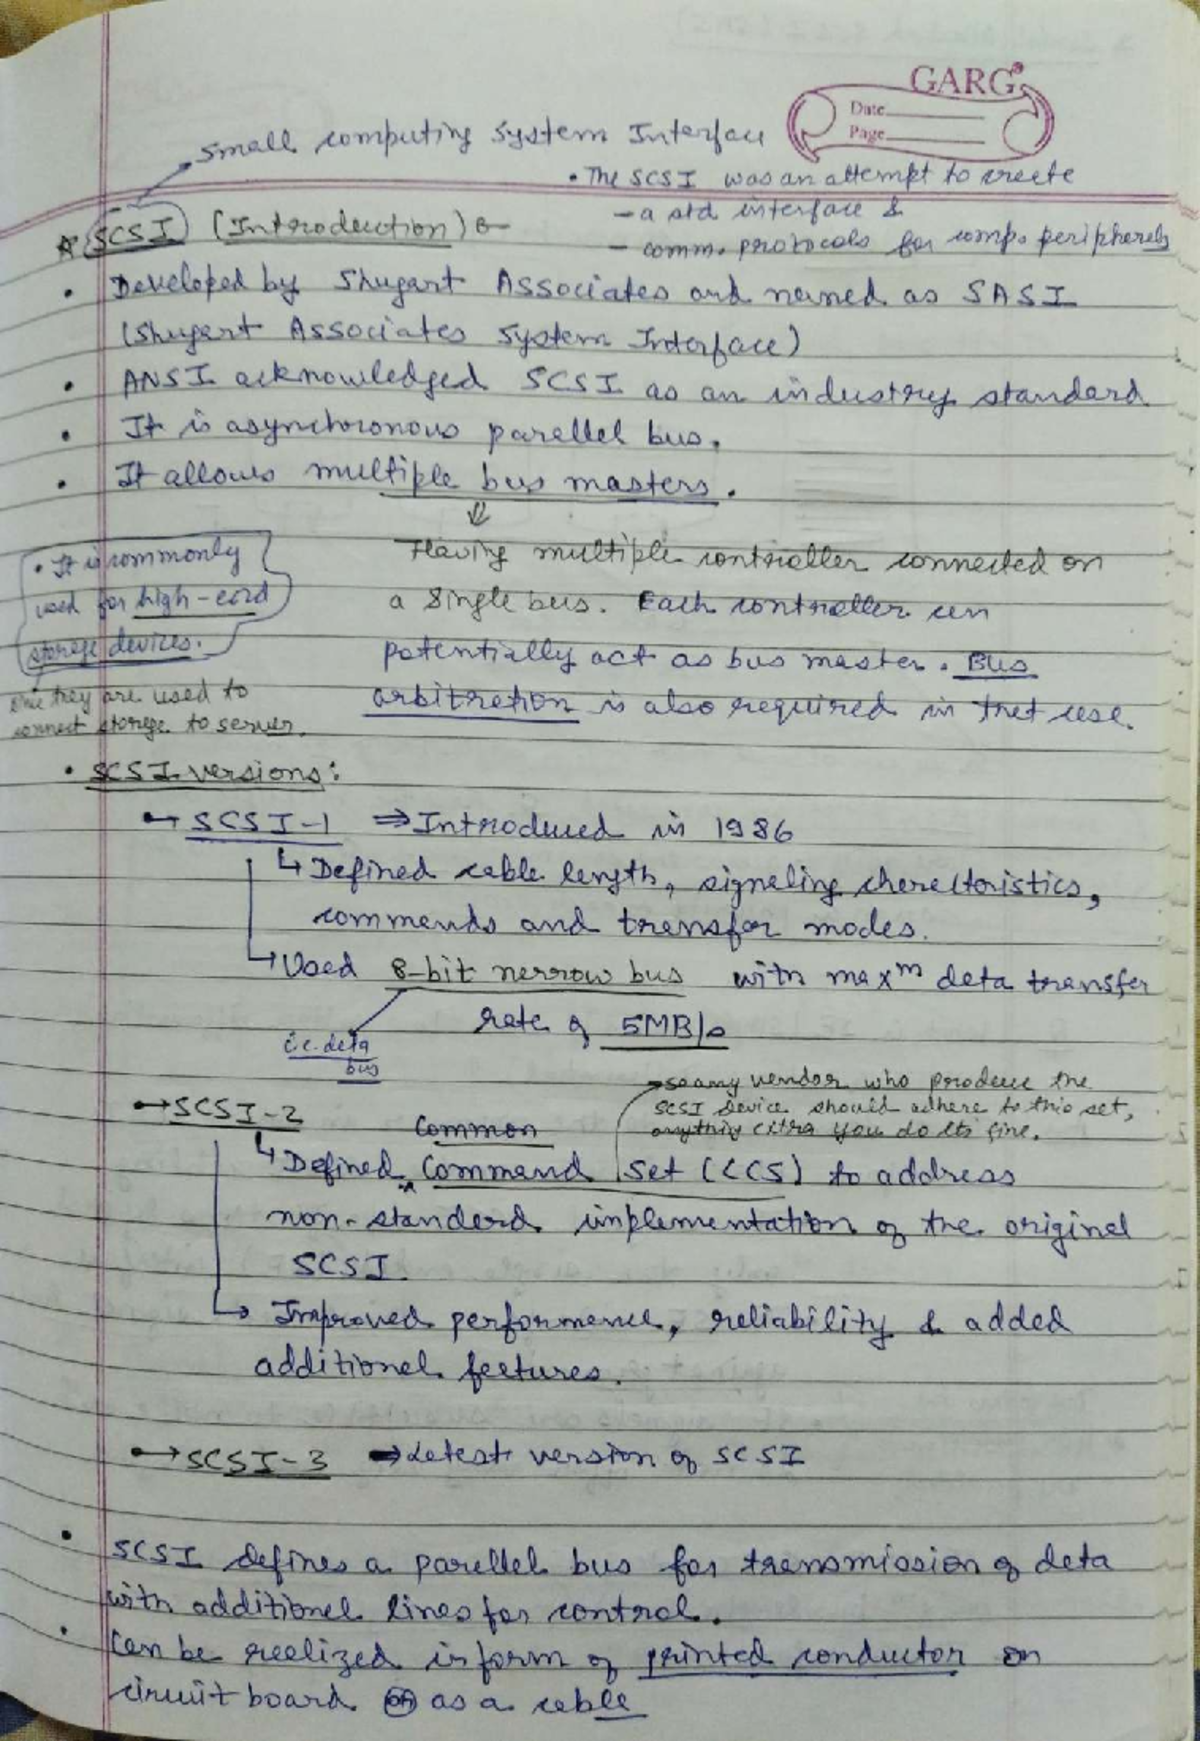 GARG®
Date
Page
Small computing System Interface
• The SCSI was an attempt to create
- a std interface &
- comm. protocols for comp. peripherals
SCSI (Introduction) :-
• Developed by Shugart Associates and named as SASI
(Shugart Associates System Interface)
• ANSI acknowledged SCSI as an industry standard
• It is asynchoronous parallel bus.
• It allows multiple bus masters.
⇓
Having multiple controller connected on
a single bus. Each controller can
potentially act as bus master. Bus
arbitration is also required in that case.
• It is commonly
used for high-end
storage devices.
they are used to
connect storage to server.
• SCSI versions:
→ SCSI-1 ⇒ Introduced in 1986
↳ Defined cable length, signaling charactoristics,
commands and transfer modes.
↳ Used 8-bit narrow bus with maxᵐ data transfer
rate of 5MB/s
i.e. data
bus
→ so any vendor who produce the
SCSI device should adhere to this set,
anything extra you do its fine.
→ SCSI-2
Common
↳ Defined Command Set (CCS) to address
non-standard implementation of the original
SCSI.
↳ Improved performance, reliability & added
additional features.
→ SCSI-3 ⇒ Latest version of SCSI
• SCSI defines a parallel bus for transmission of data
with additional lines for control.
• Can be realized in form of printed conductor on
circuit board OR as a cable